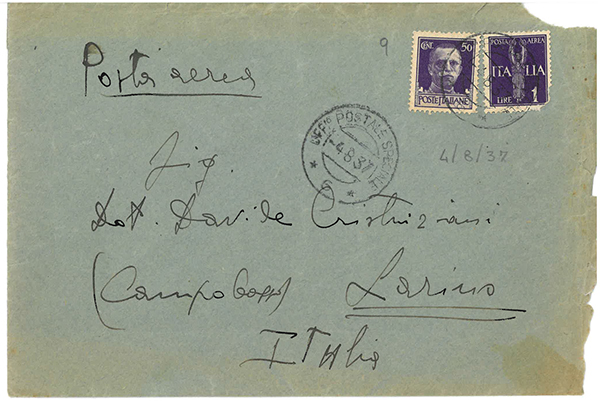 9
CENT. 50
POSTE ITALIANE
POSTA AEREA
ITALIA
LIRE 1
Posta aerea
UFFICIO POSTALE SPECIALE
4.8.37
6
4/8/37
Sig.
Dot. Davide
(Campobasso) Larino
Italia